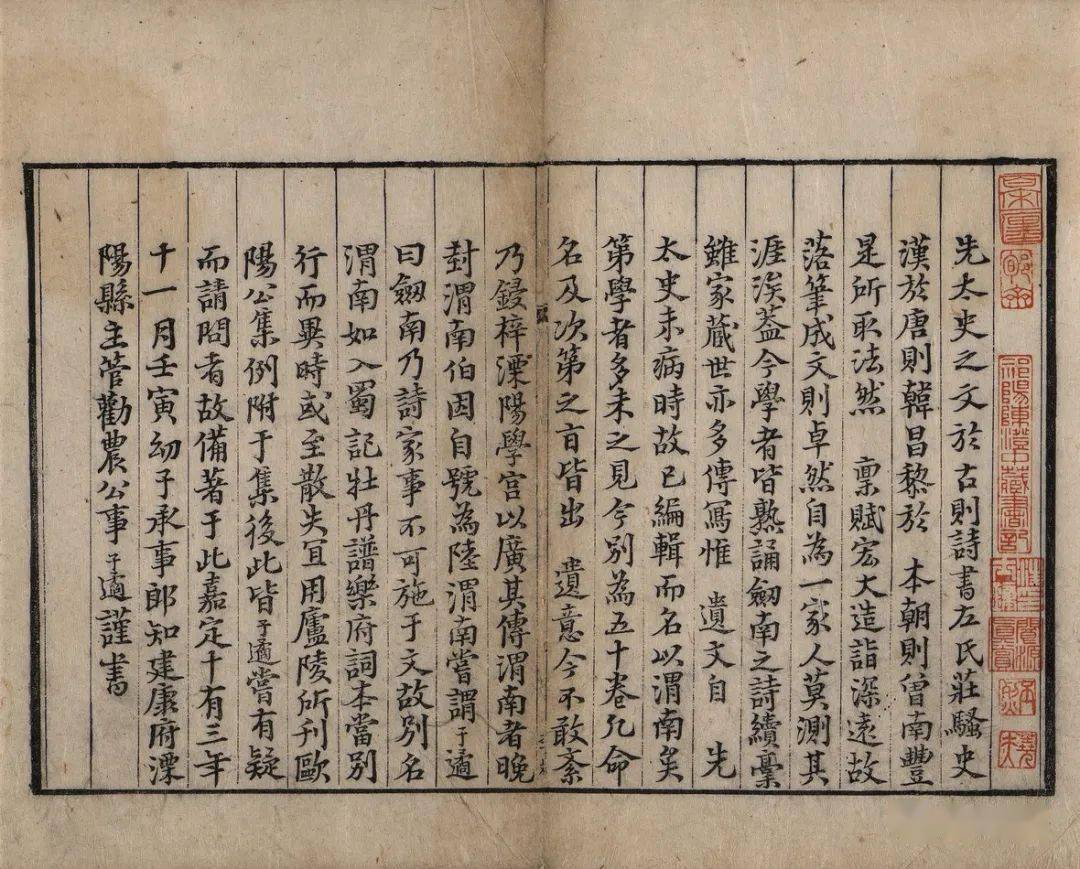 先太史之文於古則詩書左氏莊騷史
漢於唐則韓昌黎於　本朝則曾南豐
是所取法然　稟賦宏大造詣深遠故
落筆成文則卓然自為一家人莫測其
涯涘葢今學者皆熟誦劔南之詩續稾
雖家藏世亦多傳寫惟　遺文自　先
太史未病時故已編輯而名以渭南矣
第學者多未之見今別為五十卷凢命
名及次第之旨皆出　遺意今不敢紊
乃鋟梓溧陽學宫以廣其傳渭南者晚
封渭南伯因自號為陸渭南嘗謂子遹
曰劔南乃詩家事不可施于文故别名
渭南如入蜀記牡丹譜樂府詞本當别
行而異時或至散失冝用廬陵所刊歐
陽公集例附于集後此皆子遹嘗有疑
而請問者故備著于此嘉定十有三年
十一月壬寅幼子承事郎知建康府溧
陽縣主管勸農公事子遹謹書
祁陽陳澄中藏書記